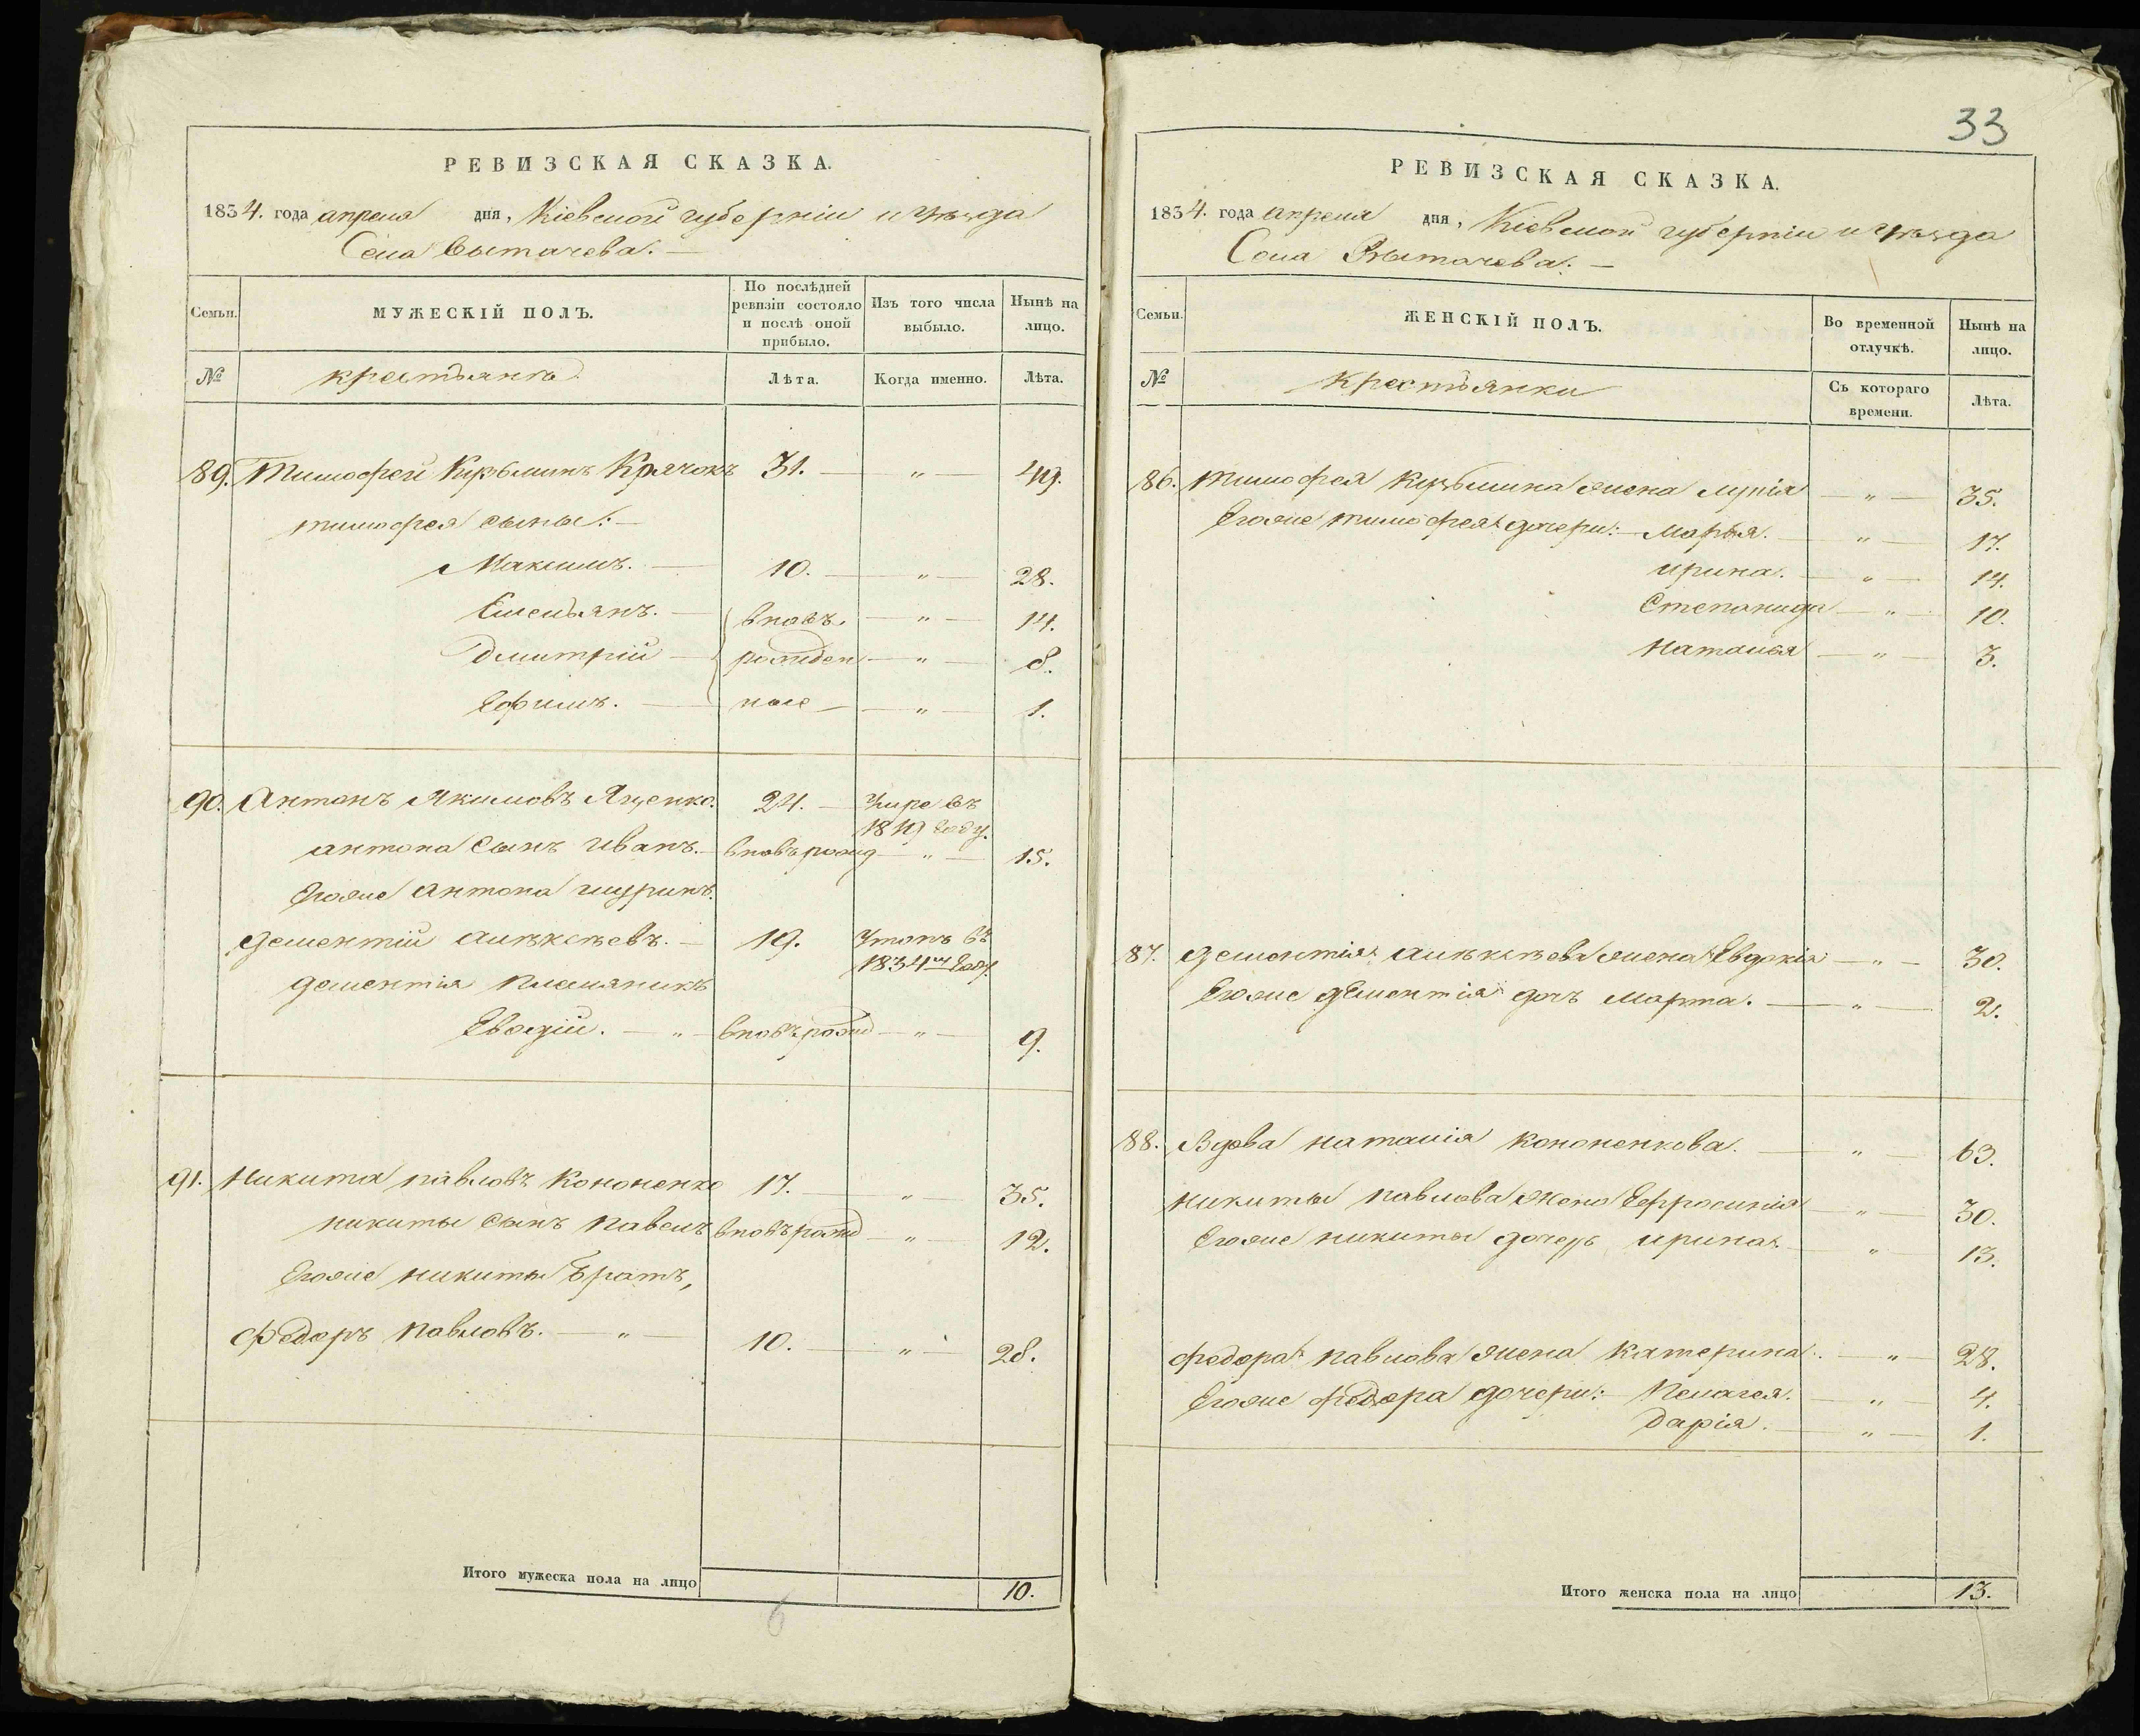 РЕВИЗСКАЯ СКАЗКА.
1834. года апреля дня, Кіевской губерніи и уѣзда
Села Вытачева. —
Семьи.
МУЖЕСКІЙ ПОЛЪ.
По послѣдней ревизіи состояло и послѣ оной прибыло.
Изъ того числа выбыло.
Нынѣ на лицо.
№ крестьяне Лѣта. Когда именно. Лѣта.
89. Тимофей Кузьминъ Крячокъ 31. — „ 49.
тимофея сыны: —
Максимъ. — 10. — „ — 28.
Емельянъ. — вновь — „ — 14.
Дмитрій — рожден — „ — 8.
Ефимъ. — ные — „ — 1.
90. Антонъ Якимовъ Яценко. 24. — Умре въ
1819 году.
антона сынъ Иванъ. — вновь рожд — „ — 15.
Егоже антона шуринъ.
дементій алѣксѣевъ. — 19. Утопъ въ
1834м году.
дементія племяникъ
Евсодій. — „ — вновь рожд — „ — 9.
91. Никита павловъ Кононенко 17. — „ — 35.
никиты сынъ павелъ вновь рожд — „ — 12.
Егоже никиты братъ,
Федоръ павловъ. — „ — 10. — „ — 28.
Итого мужеска пола на лицо 10.
6
33
РЕВИЗСКАЯ СКАЗКА.
1834. года апреля дня, Кіевской губерніи и уѣзда
Села Вытачева. —
Семьи.
ЖЕНСКІЙ ПОЛЪ.
Во временной отлучкѣ.
Нынѣ на лицо.
№ Крестьянки Съ котораго времени. Лѣта.
86. тимофея Кузьмина жена — „ — 35.
Егоже тимофея дочери: — Марья. — „ — 17.
ирина. — „ — 14.
Степанида — „ — 10.
Наталья — „ — 3.
87. дементія алѣксѣева жена Евдокія — „ — 30.
Егоже дементія дочь марта. — „ — 2.
88. Вдова наталія кононенкова. — „ — 63.
никиты павлова жена Ефросинія — „ — 30.
Егоже никиты дочерь ирина. — „ — 13.
федора павлова жена катерина. — „ — 28.
Егоже федора дочери: — Пелагея. — „ — 4.
Дарія. — „ — 1.
Итого женска пола на лицо 13.